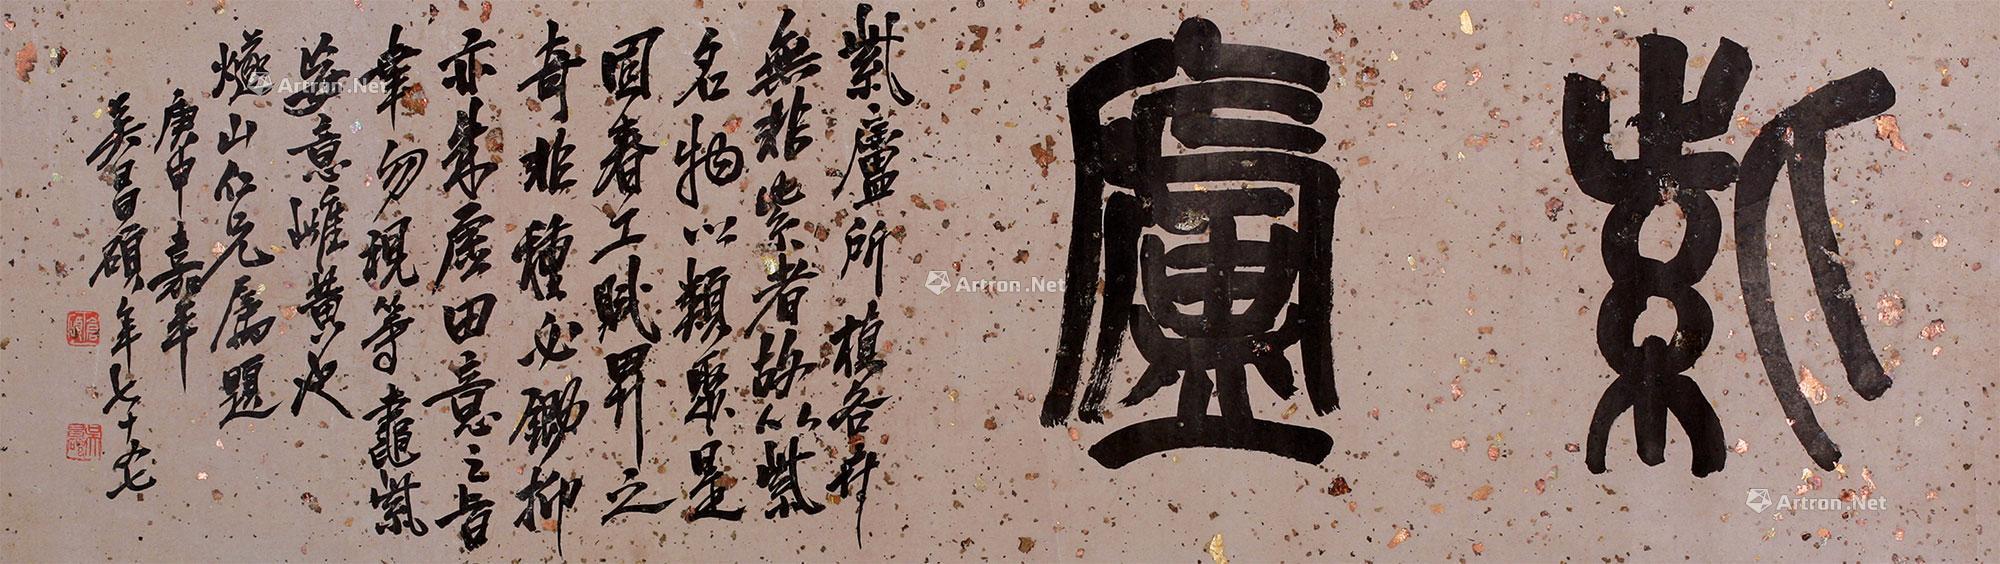 紫廬
紫廬所植各卉
無非紫者故以紫
名物以類聚是
固春工賦畀之
奇非種必鋤抑
亦朱虛田意之旨
幸勿視等鼃紫
妄意雌黃也
山仁兄屬題
庚申嘉平
吳昌碩年七十七
Artron.Net
Artron.Net
Artron.Net
Artron.Net